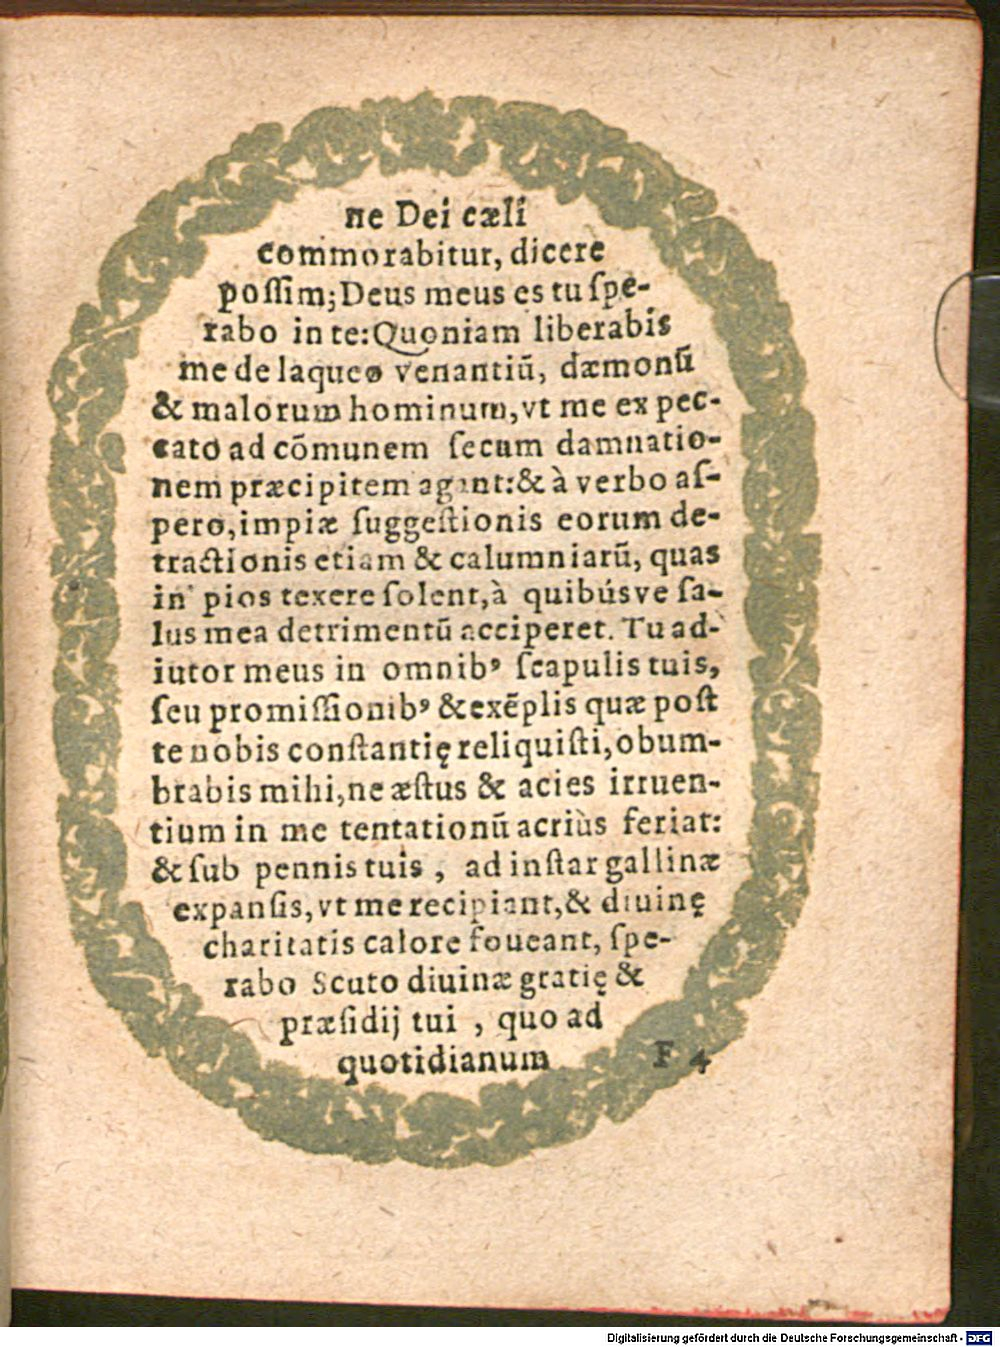 ne Dei cæli
commorabitur, dicere
poſſim; Deus meus es tu ſpe-
rabo in te: Quoniam liberabis
me de laqueo venantiũ, dæmonũ
& malorum hominum, vt me ex pec-
cato ad cõmunem ſecum damnatio-
nem præcipitem agant: & à verbo aſ-
pero, impiæ ſuggeſtionis eorum de-
tractionis etiam & calumniarũ, quas
in pios texere ſolent, à quibúsve ſa-
lus mea detrimentũ acciperet. Tu ad-
iutor meus in omnibꝰ ſcapulis tuis,
ſeu promiſſionibꝰ & exẽplis quæ poſt
te nobis conſtantię reliquiſti, obum-
brabis mihi, ne æſtus & acies irruen-
tium in me tentationũ acriùs feriat:
& ſub pennis tuis, ad inſtar gallinæ
expanſis, vt me recipiant, & diuinę
charitatis calore foueant, ſpe-
rabo Scuto diuinæ gratię &
præſidij tui, quo ad
quotidianum
F 4
Digitalisierung gefördert durch die Deutsche Forschungsgemeinschaft - DFG